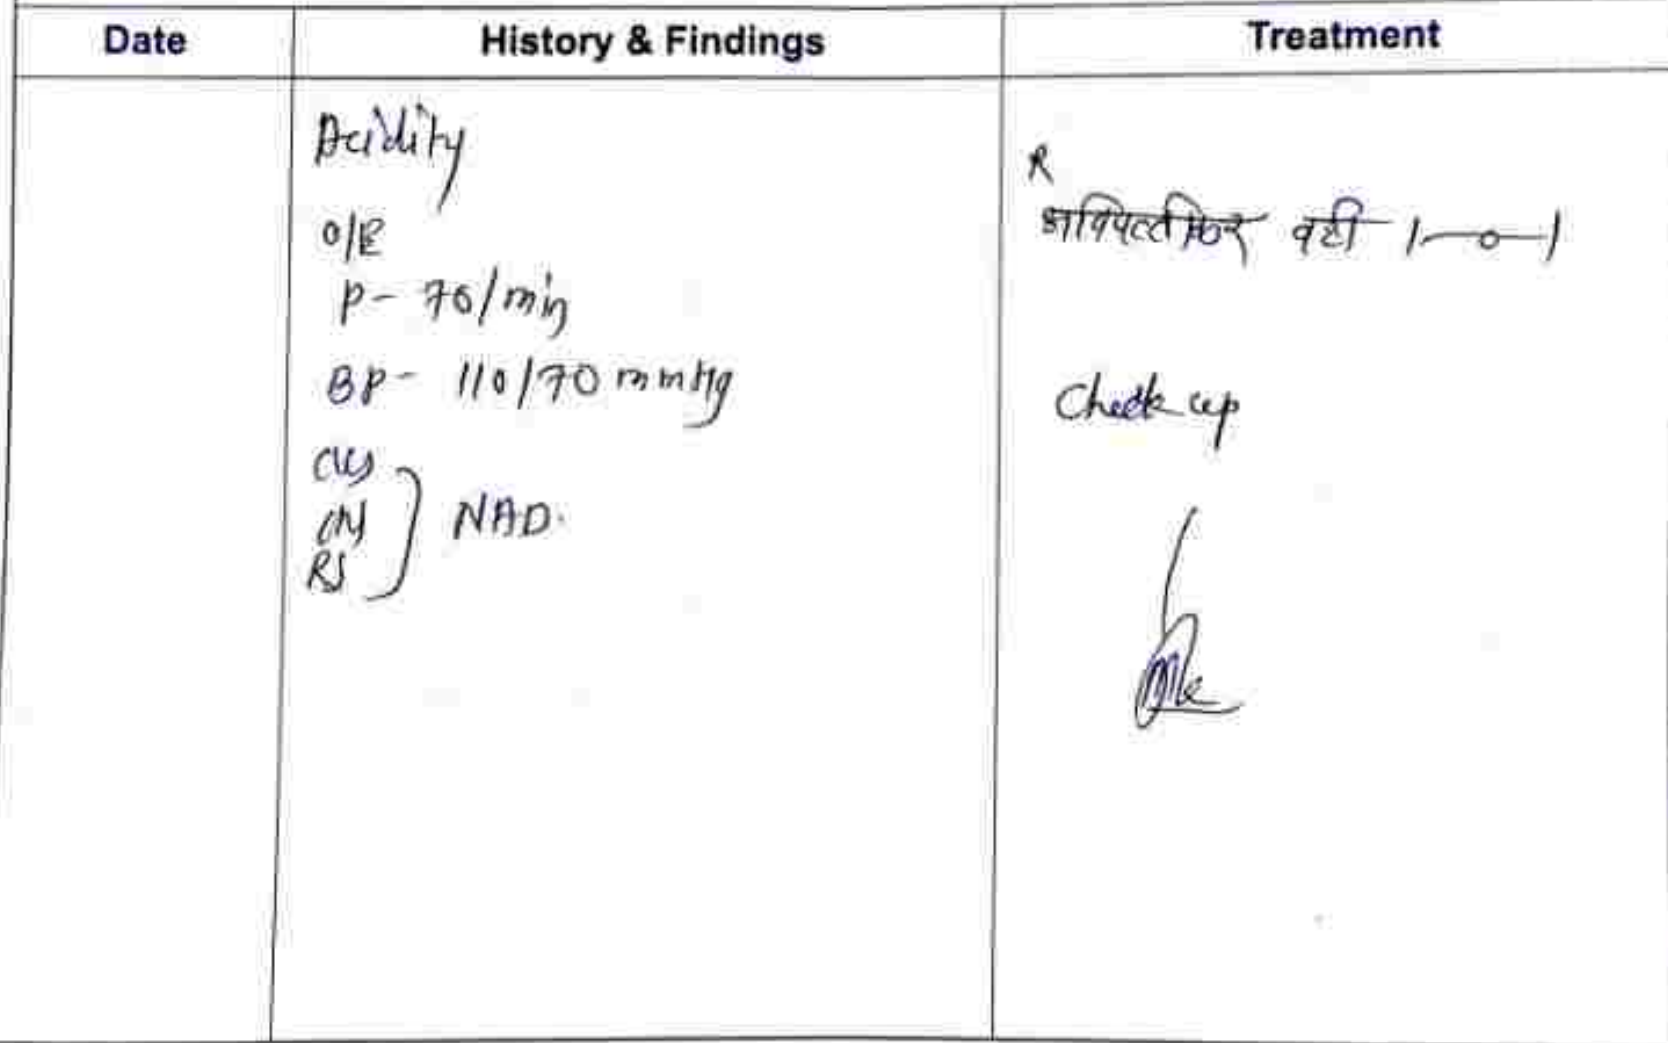 Date
History & Findings
Treatment
Acidity
O/E
P- 76/min
BP- 110/70 mmHg
CVS
CNS
RS
NAD.
R
अविपत्तीकर वटी 1—0—1
Check up